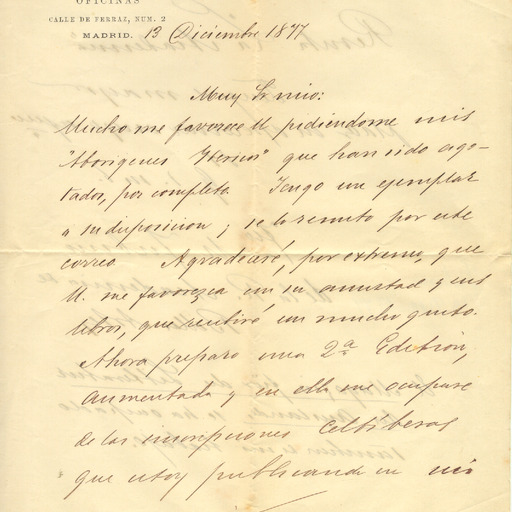 OFICINAS
CALLE DE FERRAZ, NUM. 2
MADRID. 13 Diciembre 1897
Muy Sr mio:
Mucho me favorece U pidiendome mis
"Aborigenes Ibericos" que han sido ago-
tados, por completo. Tengo un ejemplar
a su disposicion; se lo remito por este
correo. Agradeceré, por extremo, que
U. me favorezca con su amistad y sus
libros, que recibiré con mucho gusto.
Ahora preparo una 2ª Edition,
aumentada y en ella me ocupare
de las inscripciones Celtiberas
que estoy publicando en